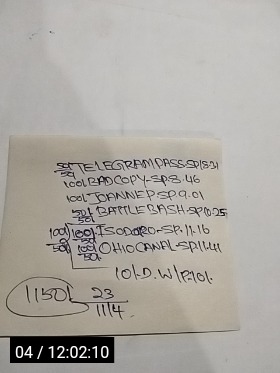 50/50/ TELEGRAM PASS-SP.8.31
100/ BAD COPY-SP.8.46
100/ JOANNE P-SP.9.01
50/50/ BATTLE BASH-SP.10.25
100/50/ 100/ ISODORO-SP.11.16
100/50/ OHIO CANAL-SP.11.41
10/.D.W/P.10/.
1150/ 23
11/4.
04 / 12:02:10